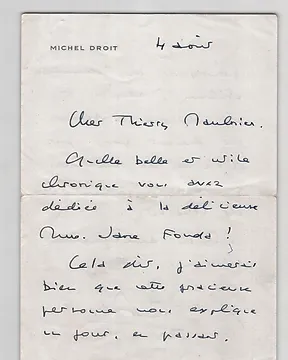 MICHEL DROIT
4 août
Cher Thierry Maulnier.
Quelle belle et utile
chronique vous avez
dédiée à la délicieuse
Mme. Jane Fonda !
Cela dit, j'aimerais
bien que cette gracieuse
personne nous explique
un jour, en passant.